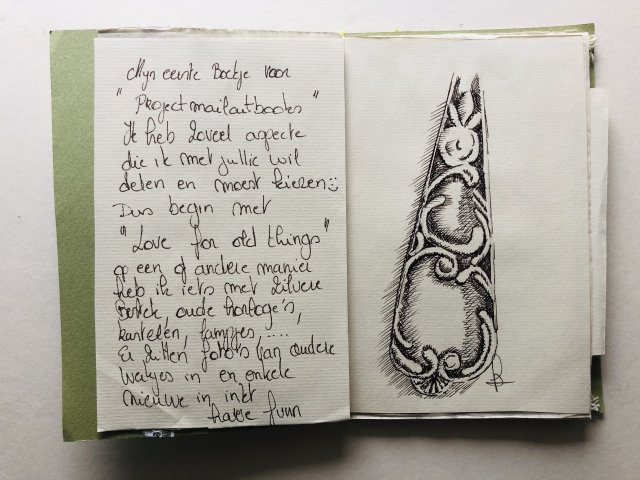 Mijn eerste Boekje voor
"Projectmailartbooks"
Ik heb zoveel aspecte
die ik met jullie wil
delen en moest kiezen
Dus begin met
"Love for old things"
op een of andere manier
heb ik iets met zilvere
Bestek, oude horloge's,
kastelen, lampjes, ....
Er zitten foto's van oudere
werkjes in en enkele
nieuwe in inkt